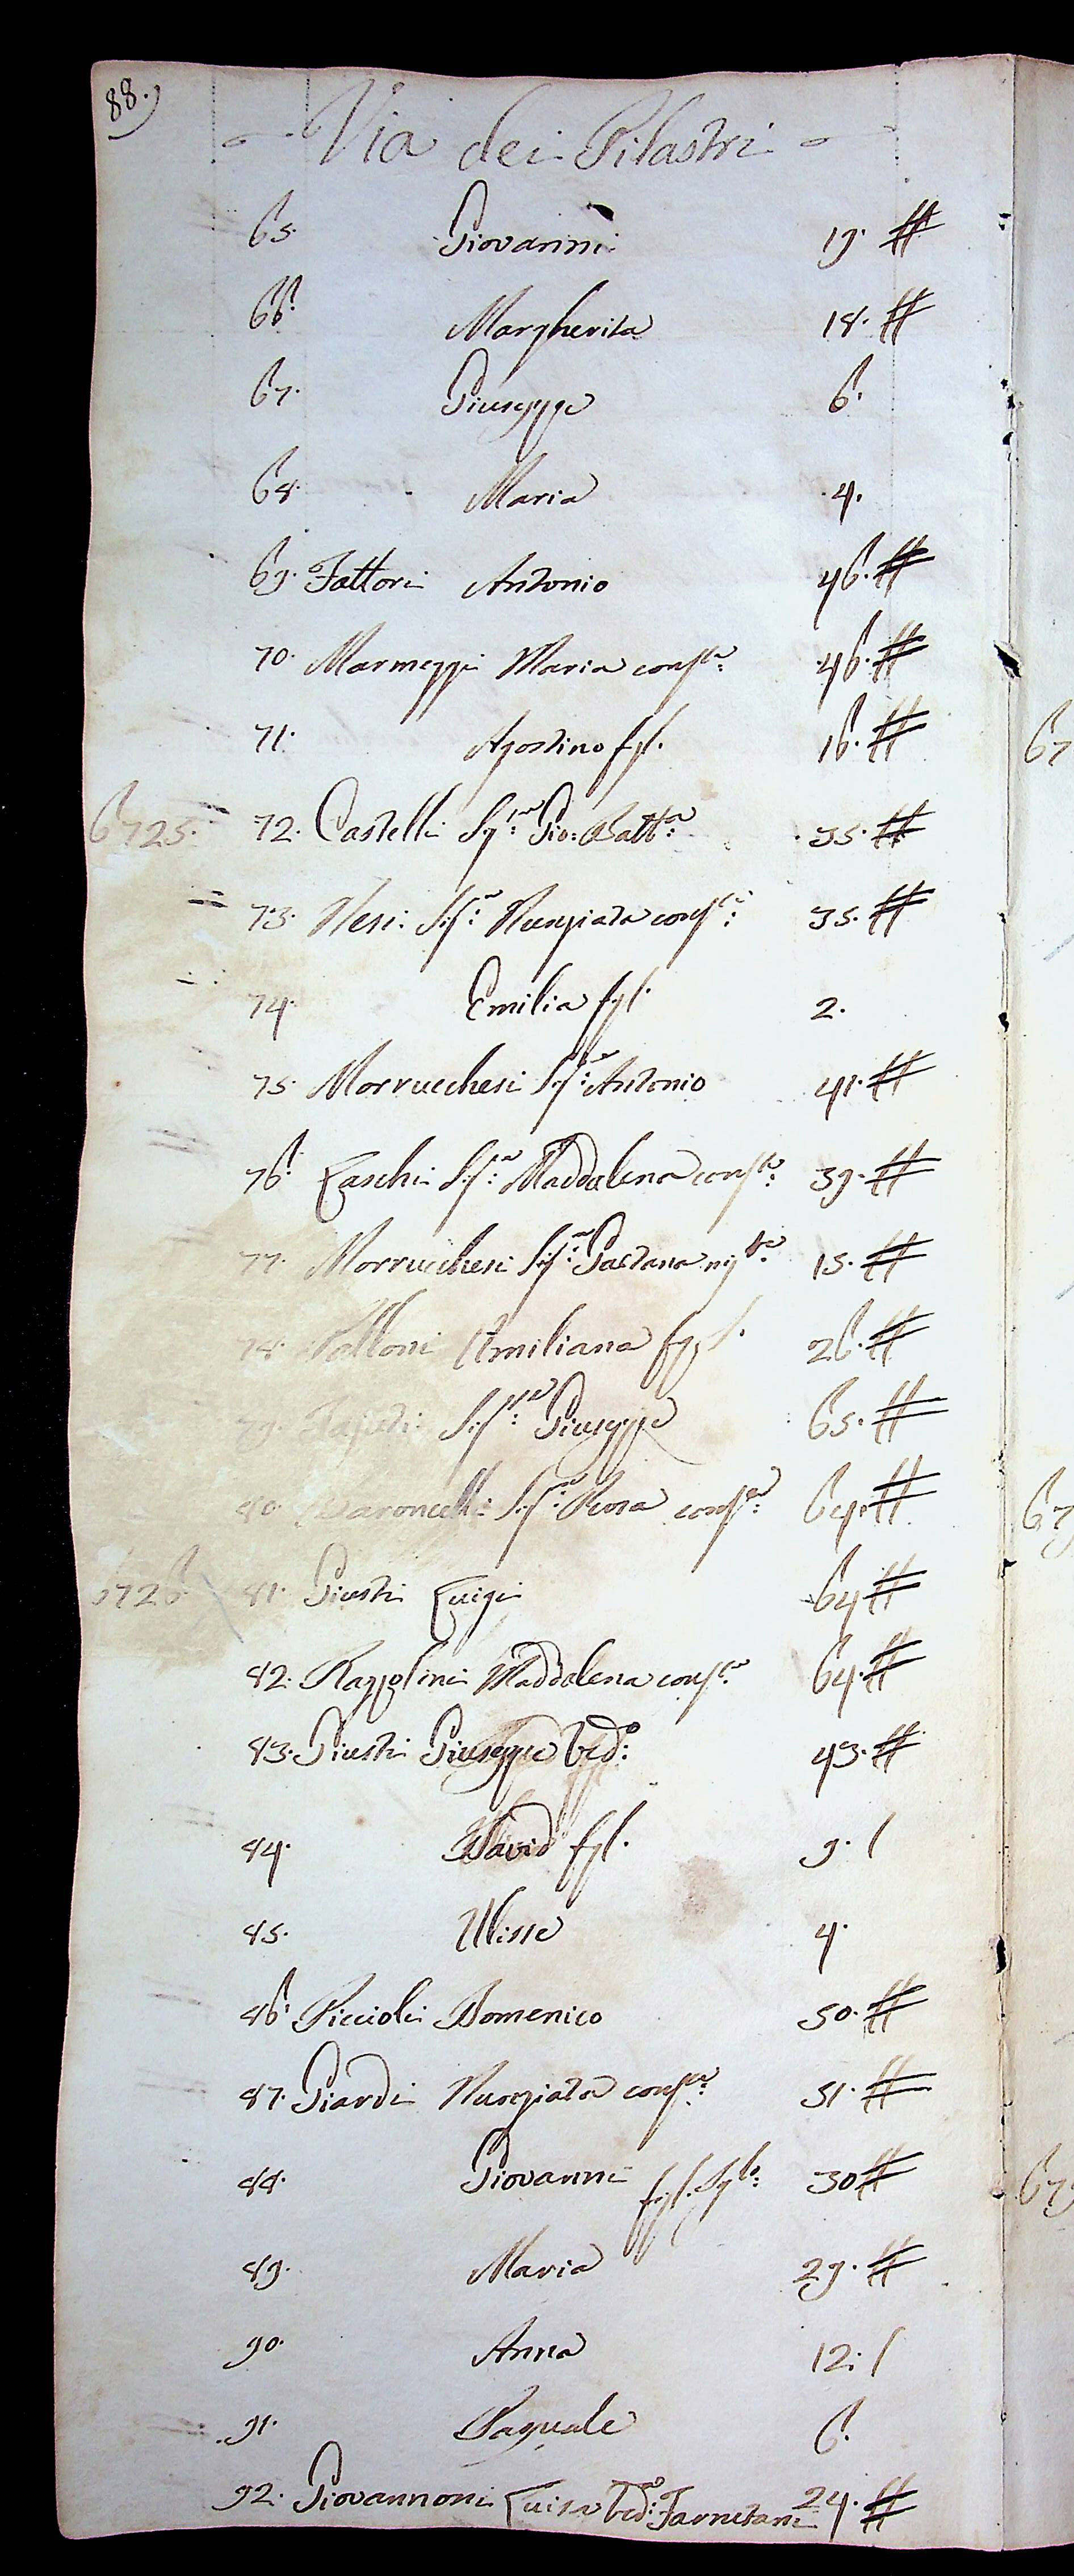 88.
Via dei Pilastri
65. Giovanni 19. #
66. Margherita 18. #
67. Giuseppe 6.
68. Maria 4.
69. Fattori Antonio 46. #
70. Marmeggi Maria cons.ta 46. #
71. Agostino fgl. 16. #
6725. 72. Castelli Sig.r Gio: Batt.a 35. #
73. Nesi Sig.a Nunziata cons.te 35. #
74. Emilia fgl. 2.
75. Morrucchesi Sig.r Antonio 41. #
76. Laschi Sig.a Maddalena cons.te 39. #
77. Morrucchesi Sig.a Gaetana 15. #
78. Emiliana 26. #
79. Sig.re Giuseppe 65. #
80. Baroncelli Sig.a Rosa cons.te 64. #
6726 81. Giusti Luigi 64 #
82. Razzolini Maddalena cons.te 64. #
83. Giusti Giuseppe Ved.o 43. #
84. David fgl. 9. /
85. Ulisse 4.
86. Piccioli Domenico 50. #
87. Giardi Nunziata cons.te 51. #
88. Giovanni fgl. 30 #
89. Maria 29. #
90. Anna 12. /
91. Pasquale 6.
92. Giovannoni Luisa Ved.a Farnetani 24. #
67
67
67